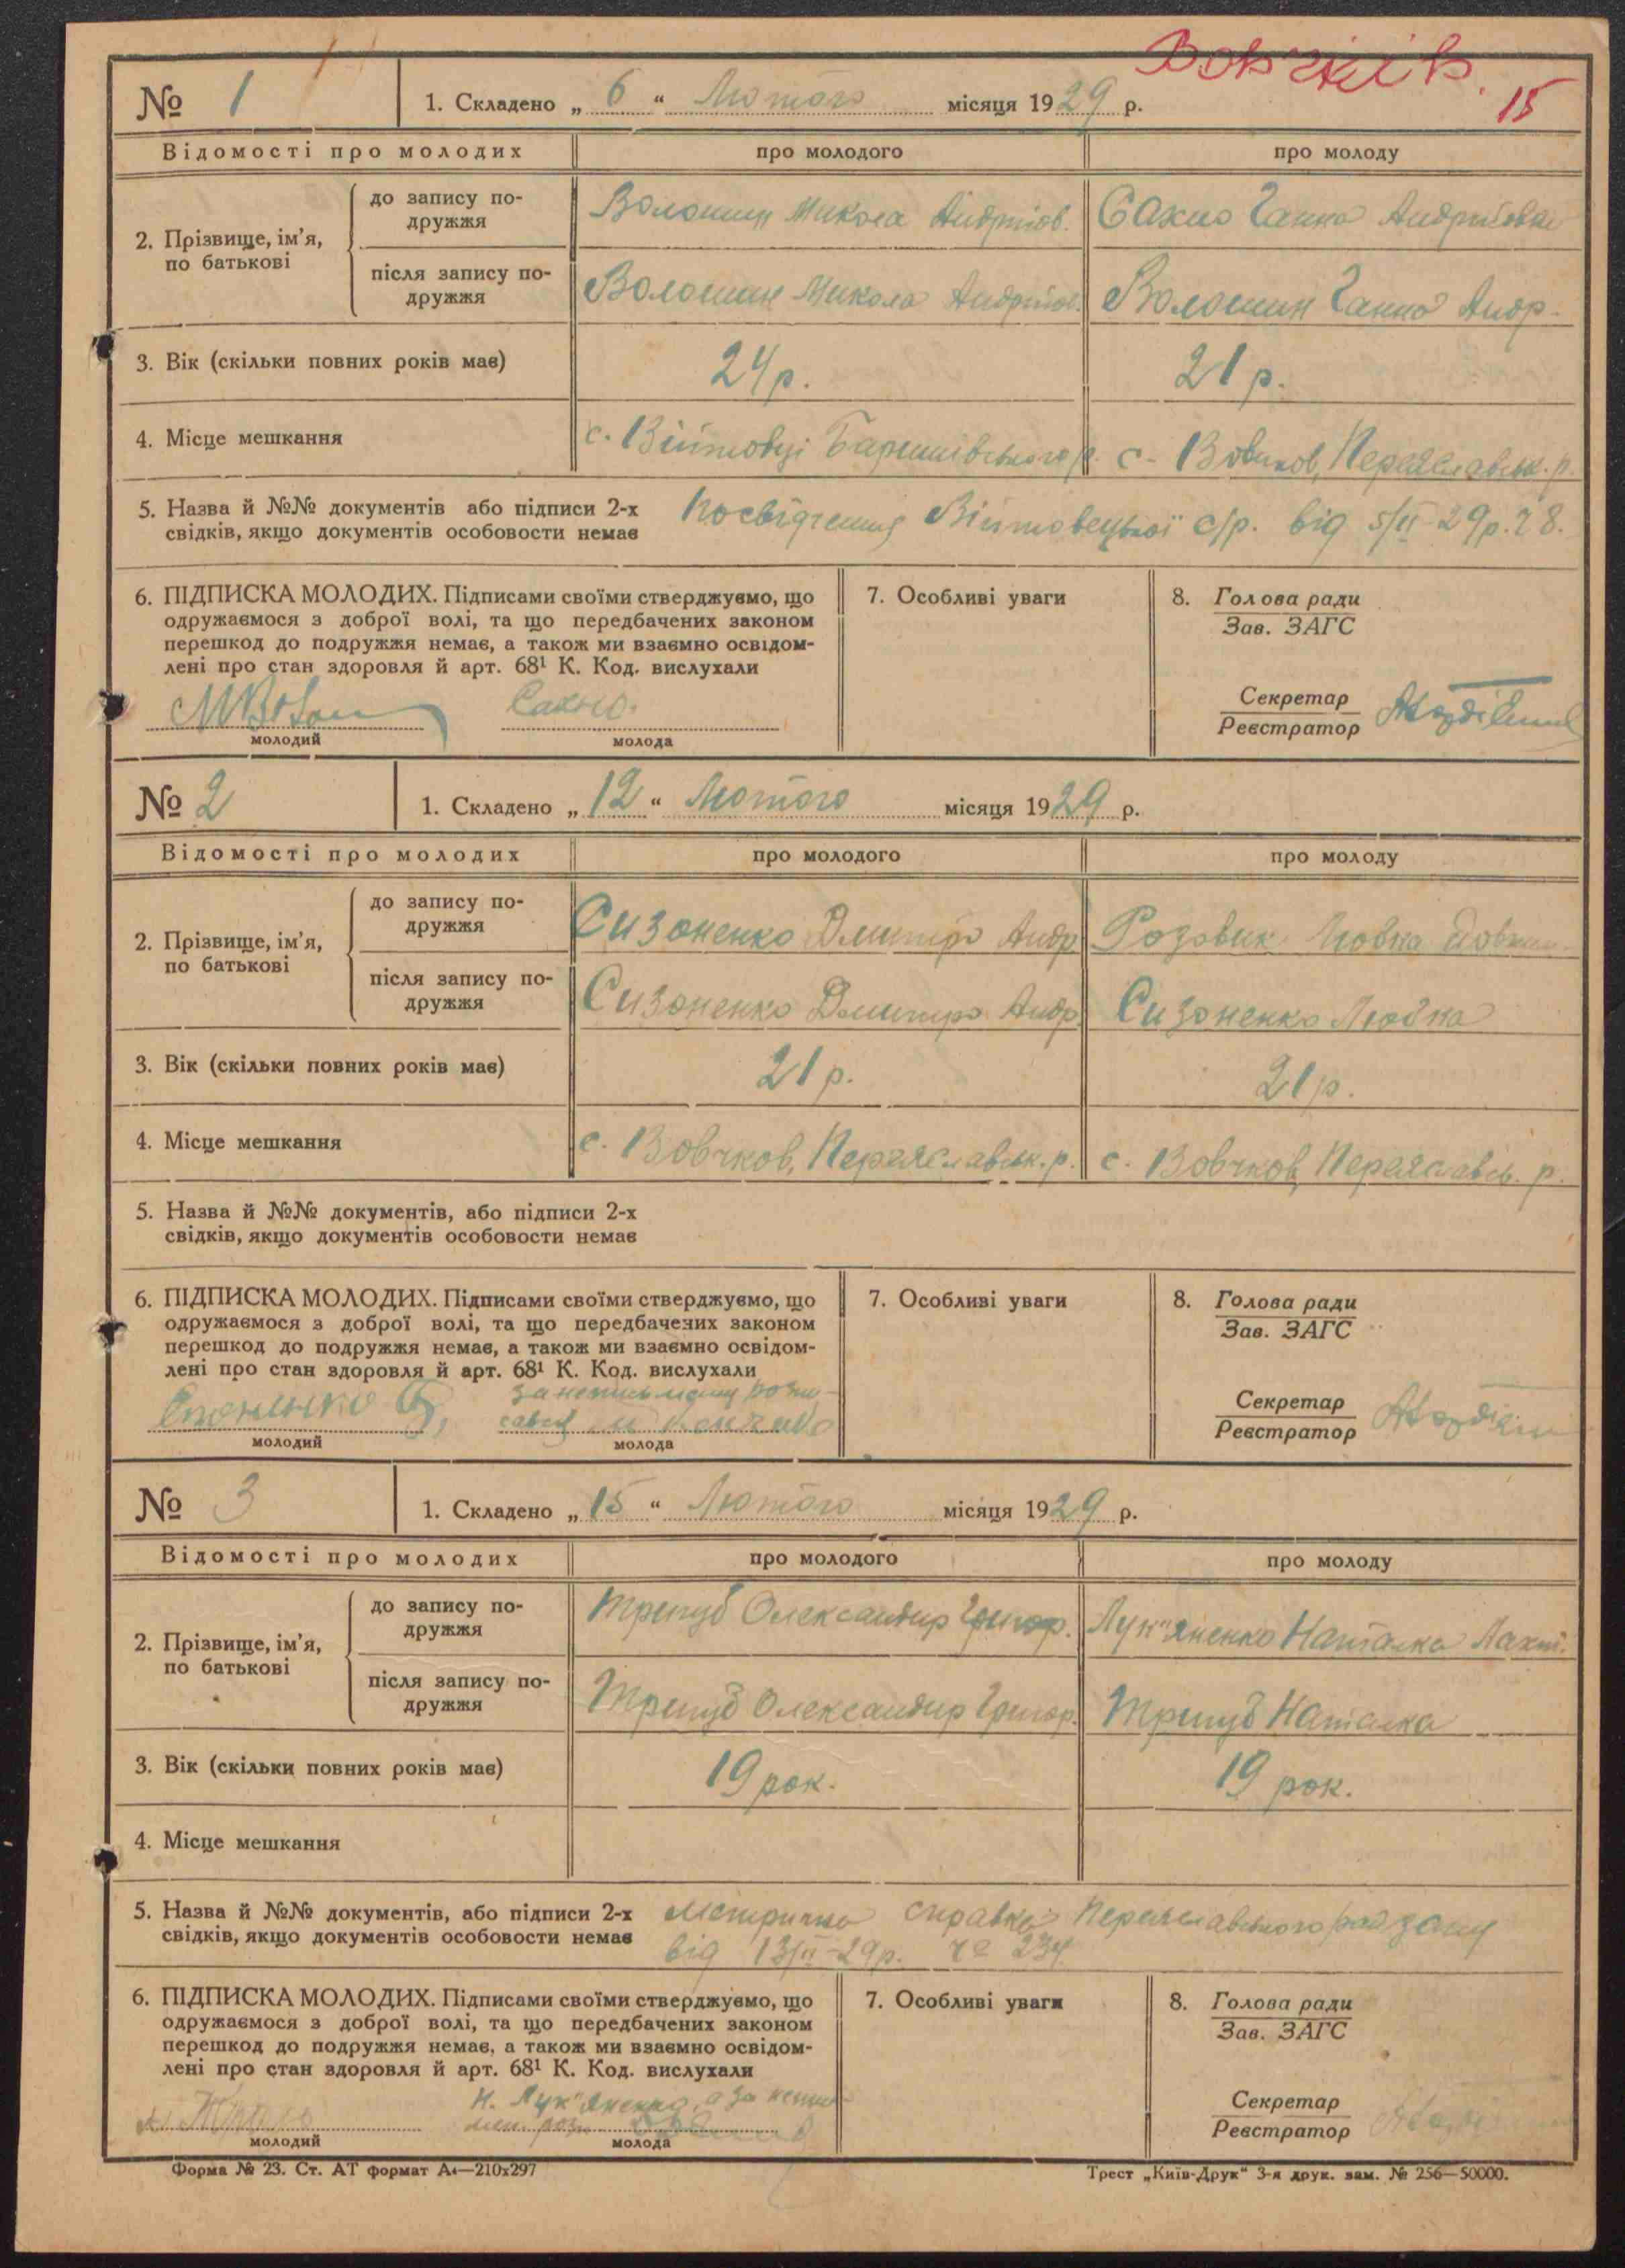 Вовчків.
15
№ 1
1. Складено „ 6 “ Лютого місяця 1929 р.
Відомості про молодих про молодого про молоду
2. Прізвище, ім’я, по батькові
до запису по-
дружжя
Волошин Микола Андріїв. Сахно Ганна Андріївна
після запису по-
дружжя
Волошин Микола Андріїв. Волошин Ганна Андр.
3. Вік (скільки повних років має) 24 р. 21 р.
4. Місце мешкання с. Війтовці Баришівського р. с. Вовчков, Переяславськ. р.
5. Назва й №№ документів або підписи 2-х Посвідчення Війтовецької с/р. від 5/II-29р. № 8.
свідків, якщо документів особовости немає
6. ПІДПИСКА МОЛОДИХ. Підписами своїми стверджуємо, що
одружаємося з доброї волі, та що передбачених законом
перешкод до подружжя немає, а також ми взаємно освідом-
лені про стан здоровля й арт. 68¹ К. Код. вислухали
Сахно.
молодий молода
7. Особливі уваги
8. Голова ради
Зав. ЗАГС
Секретар
Реєстратор
№ 2
1. Складено „ 12 “ Лютого місяця 1929 р.
Відомості про молодих про молодого про молоду
2. Прізвище, ім’я, по батькові
до запису по-
дружжя
Сизоненко Дмитро Андр. Розовик Любка
після запису по-
дружжя
Сизоненко Дмитро Андр. Сизоненко Любка
3. Вік (скільки повних років має) 21 р. 21 р.
4. Місце мешкання с. Вовчков, Переяславськ. р. с. Вовчков, Переяславсь. р.
5. Назва й №№ документів, або підписи 2-х
свідків, якщо документів особовости немає
6. ПІДПИСКА МОЛОДИХ. Підписами своїми стверджуємо, що
одружаємося з доброї волі, та що передбачених законом
перешкод до подружжя немає, а також ми взаємно освідом-
лені про стан здоровля й арт. 68¹ К. Код. вислухали
за неписьменну розпи-
савсь
молодий молода
7. Особливі уваги
8. Голова ради
Зав. ЗАГС
Секретар
Реєстратор
№ 3
1. Складено „ 15 “ Лютого місяця 1929 р.
Відомості про молодих про молодого про молоду
2. Прізвище, ім’я, по батькові
до запису по-
дружжя
Тригуб Олександир Григор. Лук"яненко Наталка
після запису по-
дружжя
Тригуб Олександир Григор. Тригуб Наталка
3. Вік (скільки повних років має) 19 рок. 19 рок.
4. Місце мешкання
5. Назва й №№ документів, або підписи 2-х Метрична справка Переяславського райзагу
свідків, якщо документів особовости немає від 13/II-29р. № 234.
6. ПІДПИСКА МОЛОДИХ. Підписами своїми стверджуємо, що
одружаємося з доброї волі, та що передбачених законом
перешкод до подружжя немає, а також ми взаємно освідом-
лені про стан здоровля й арт. 68¹ К. Код. вислухали
Н. Лук"яненко, а за непи-
молодий молода
7. Особливі уваги
8. Голова ради
Зав. ЗАГС
Секретар
Реєстратор
Форма № 23. Ст. АТ формат А₄—210х297 Трест „Київ-Друк“ 3-я друк. зам. № 256—50000.